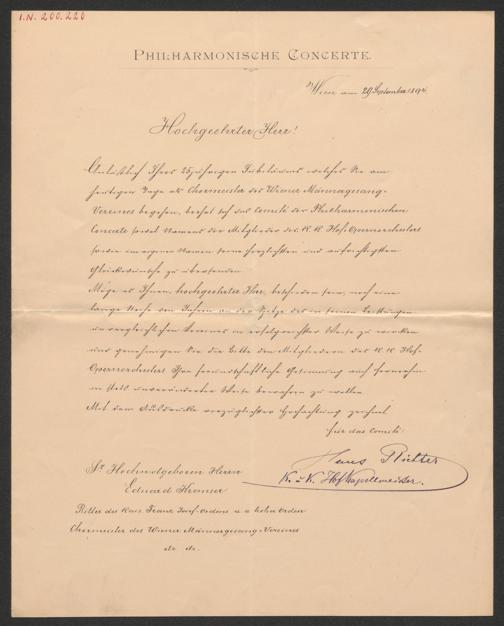 I.N. 200.220
PHILHARMONISCHE CONCERTE.
Wien am 29 September 1894.
Hochgeehrter Herr!
Anläßlich Ihres 25jährigen Jubiläums welches Sie am
heutigen Tage als Chormeister des Wiener Männergesang-
Vereines begehen, beehrt sich das Comité der Philharmonischen
Concerte sowol Namens der Mitglieder des K. K. Hof-Opernorchesters
sowie im eigenen Namen seine herzlichsten und aufrichtigsten
Glückwünsche zu übersenden.
Möge es Ihnen, hochgeehrter Herr, beschieden sein, noch eine
lange Reihe von Jahren an der Spitze des in seinen Leistungen
unvergleichlichen Vereines in erfolgreichster Weise zu wirken
und genehmigen Sie die Bitte den Mitgliedern des K. K. Hof-
Opernorchesters Ihre freundschaftliche Gesinnung auch fernerhin
in stets unveränderter Weise bewahren zu wollen.
Mit dem Ausdrucke vorzüglichster Hochachtung zeichnet
für das Comité:
Hans Richter
K. u. K. Hofkapellmeister.
Sr Hochwolgeboren Herrn
Eduard Kremser
Ritter des Kais. Franz Josef-Ordens u. a. hohen Orden
Chormeister des Wiener Männergesang-Vereines
etc. etc.